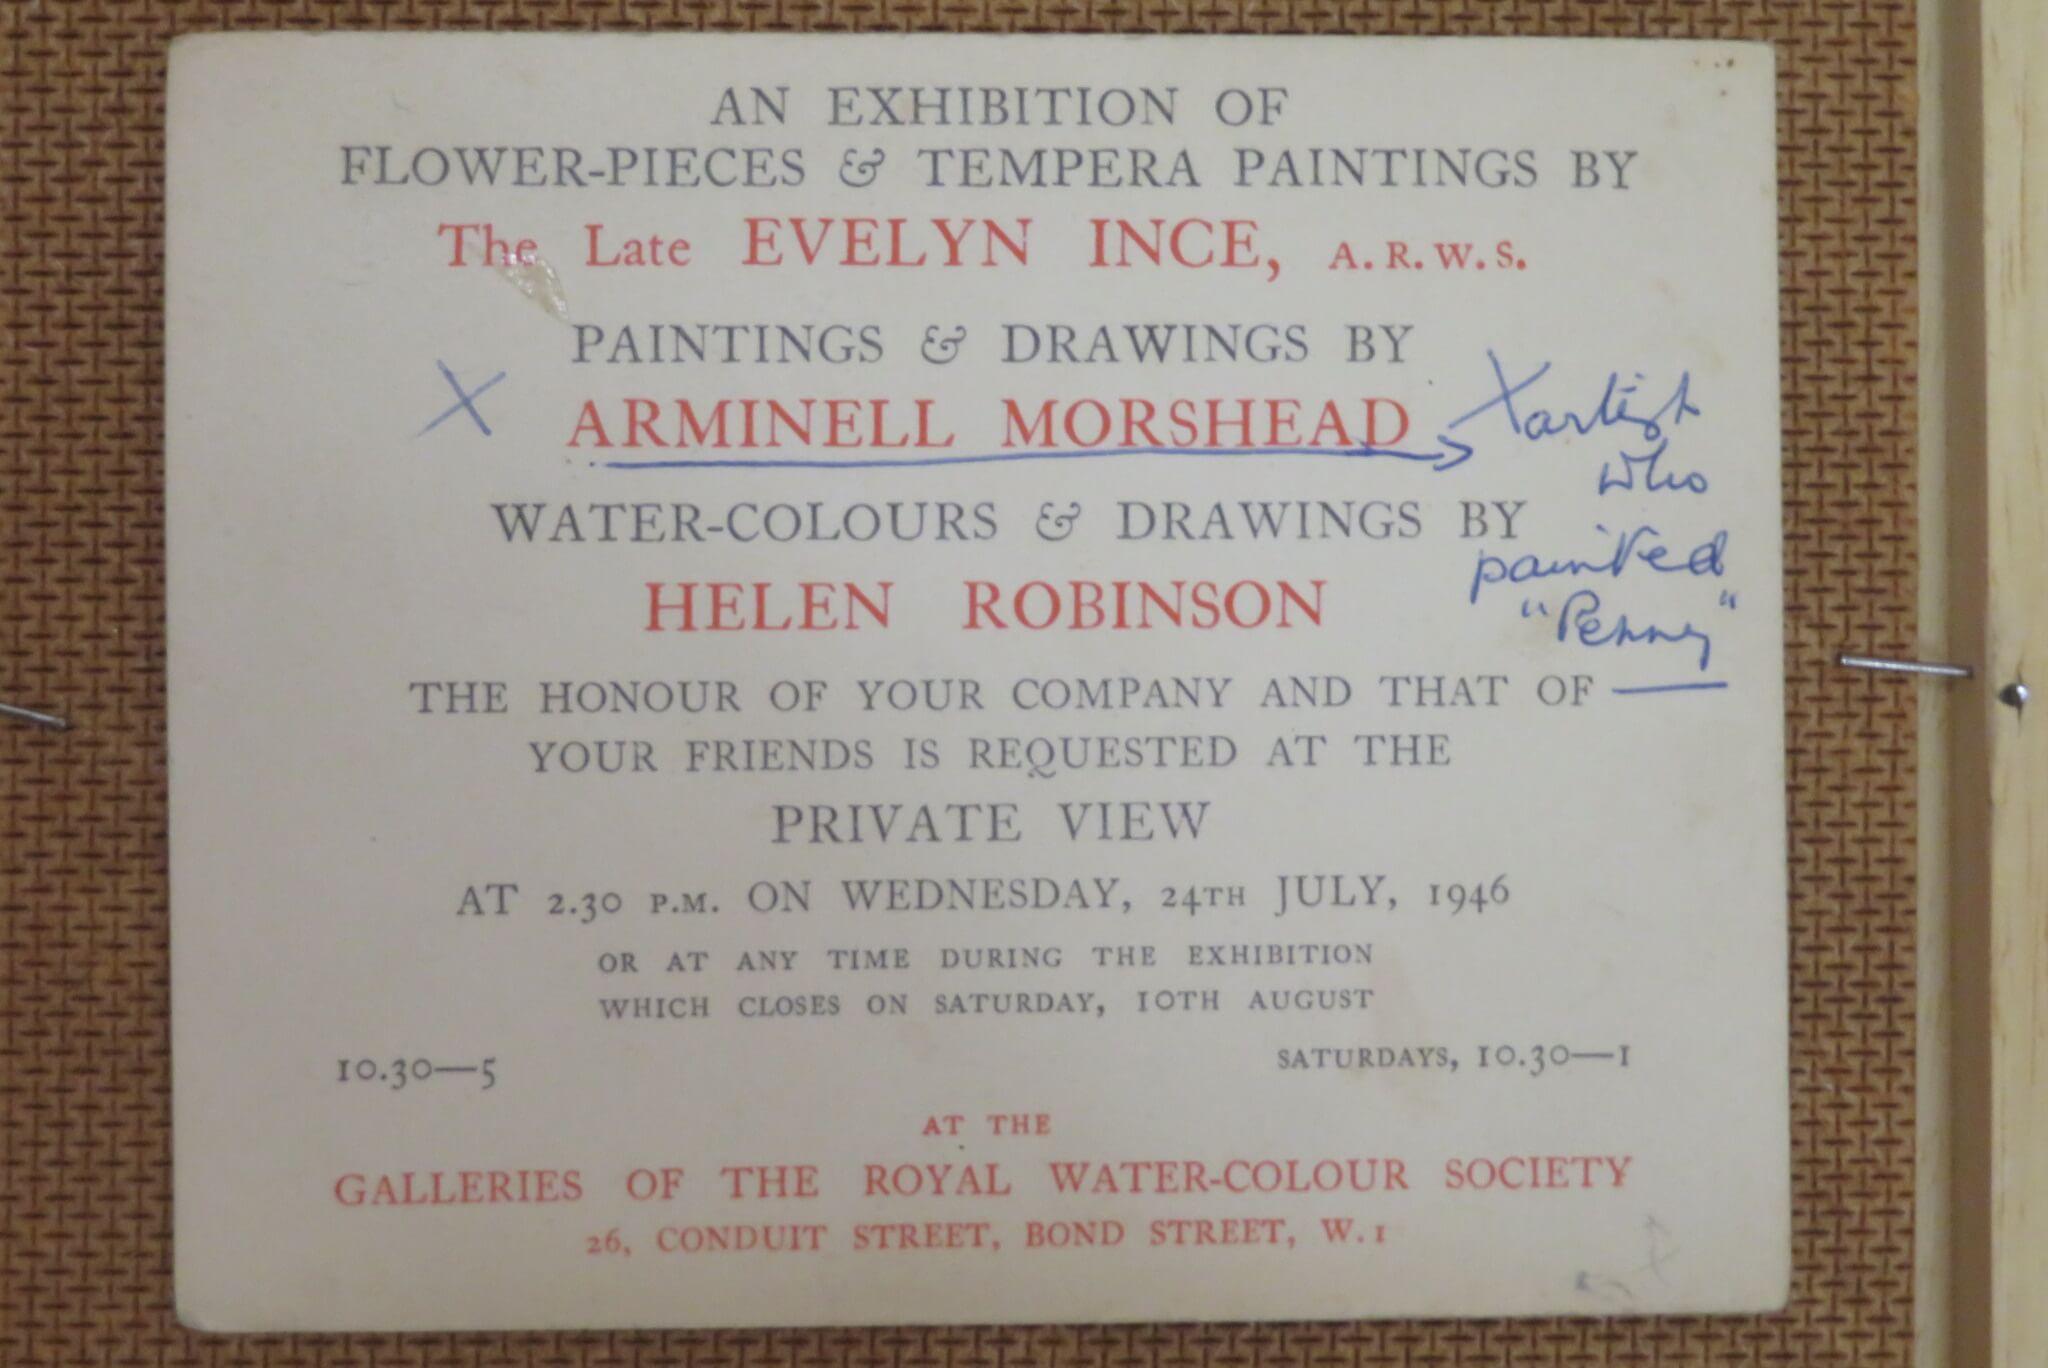 AN EXHIBITION OF
FLOWER-PIECES & TEMPERA PAINTINGS BY
The Late EVELYN INCE, A.R.W.S.
PAINTINGS & DRAWINGS BY
X ARMINELL MORSHEAD
X artist
who
painted
"Penny"
WATER-COLOURS & DRAWINGS BY
HELEN ROBINSON
THE HONOUR OF YOUR COMPANY AND THAT OF
YOUR FRIENDS IS REQUESTED AT THE
PRIVATE VIEW
AT 2.30 P.M. ON WEDNESDAY, 24TH JULY, 1946
OR AT ANY TIME DURING THE EXHIBITION
WHICH CLOSES ON SATURDAY, 10TH AUGUST
10.30—5 SATURDAYS, 10.30—1
AT THE
GALLERIES OF THE ROYAL WATER-COLOUR SOCIETY
26, CONDUIT STREET, BOND STREET, W.1